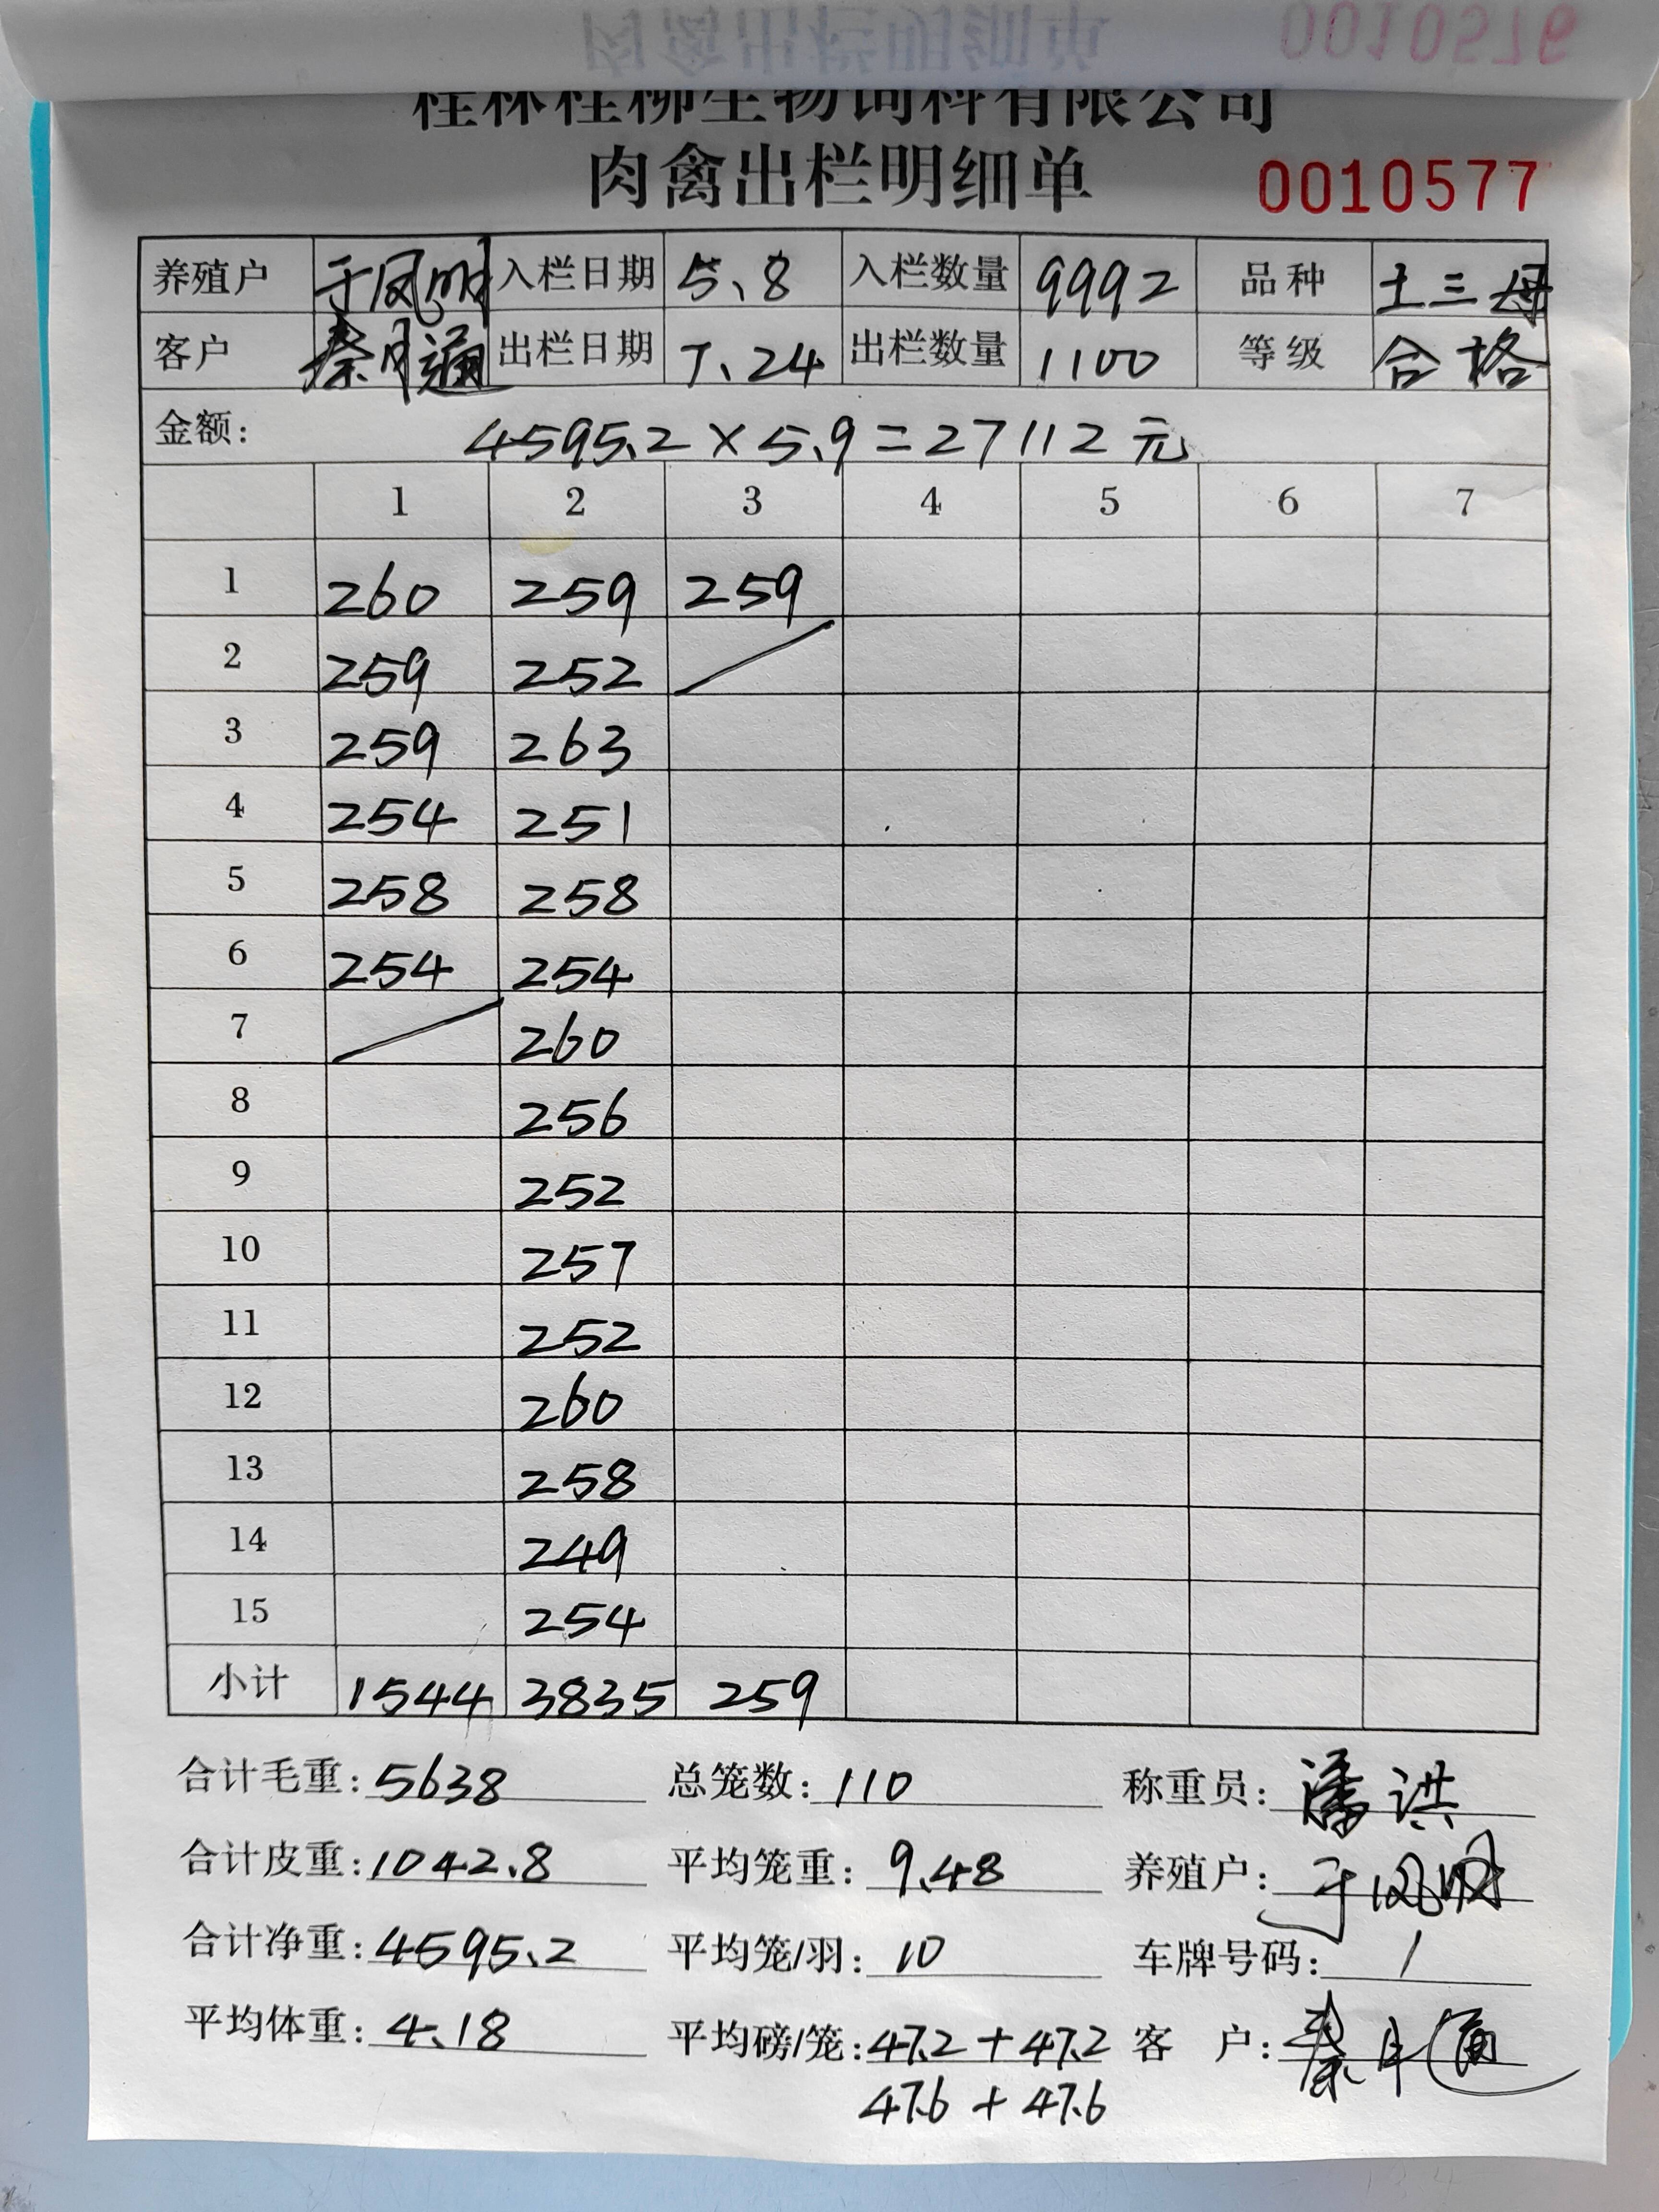 肉禽出栏明细单
0010576
桂林桂柳生物饲料有限公司
肉禽出栏明细单 0010577
养殖户 于凤明 入栏日期 5、8 入栏数量 9992 品种 土三母
客户 秦月通 出栏日期 7、24 出栏数量 1100 等级 合格
金额: 4595.2×5.9=27112元
1 2 3 4 5 6 7
1 260 259 259
2 259 252
3 259 263
4 254 251
5 258 258
6 254 254
7 260
8 256
9 252
10 257
11 252
12 260
13 258
14 249
15 254
小计 1544 3835 259
合计毛重: 5638 总笼数: 110 称重员: 潘洪
合计皮重: 1042.8 平均笼重: 9.48 养殖户: 于凤明
合计净重: 4595.2 平均笼/羽: 10 车牌号码: /
平均体重: 4.18 平均磅/笼: 47.2+47.2 客户: 秦月通
47.6+47.6